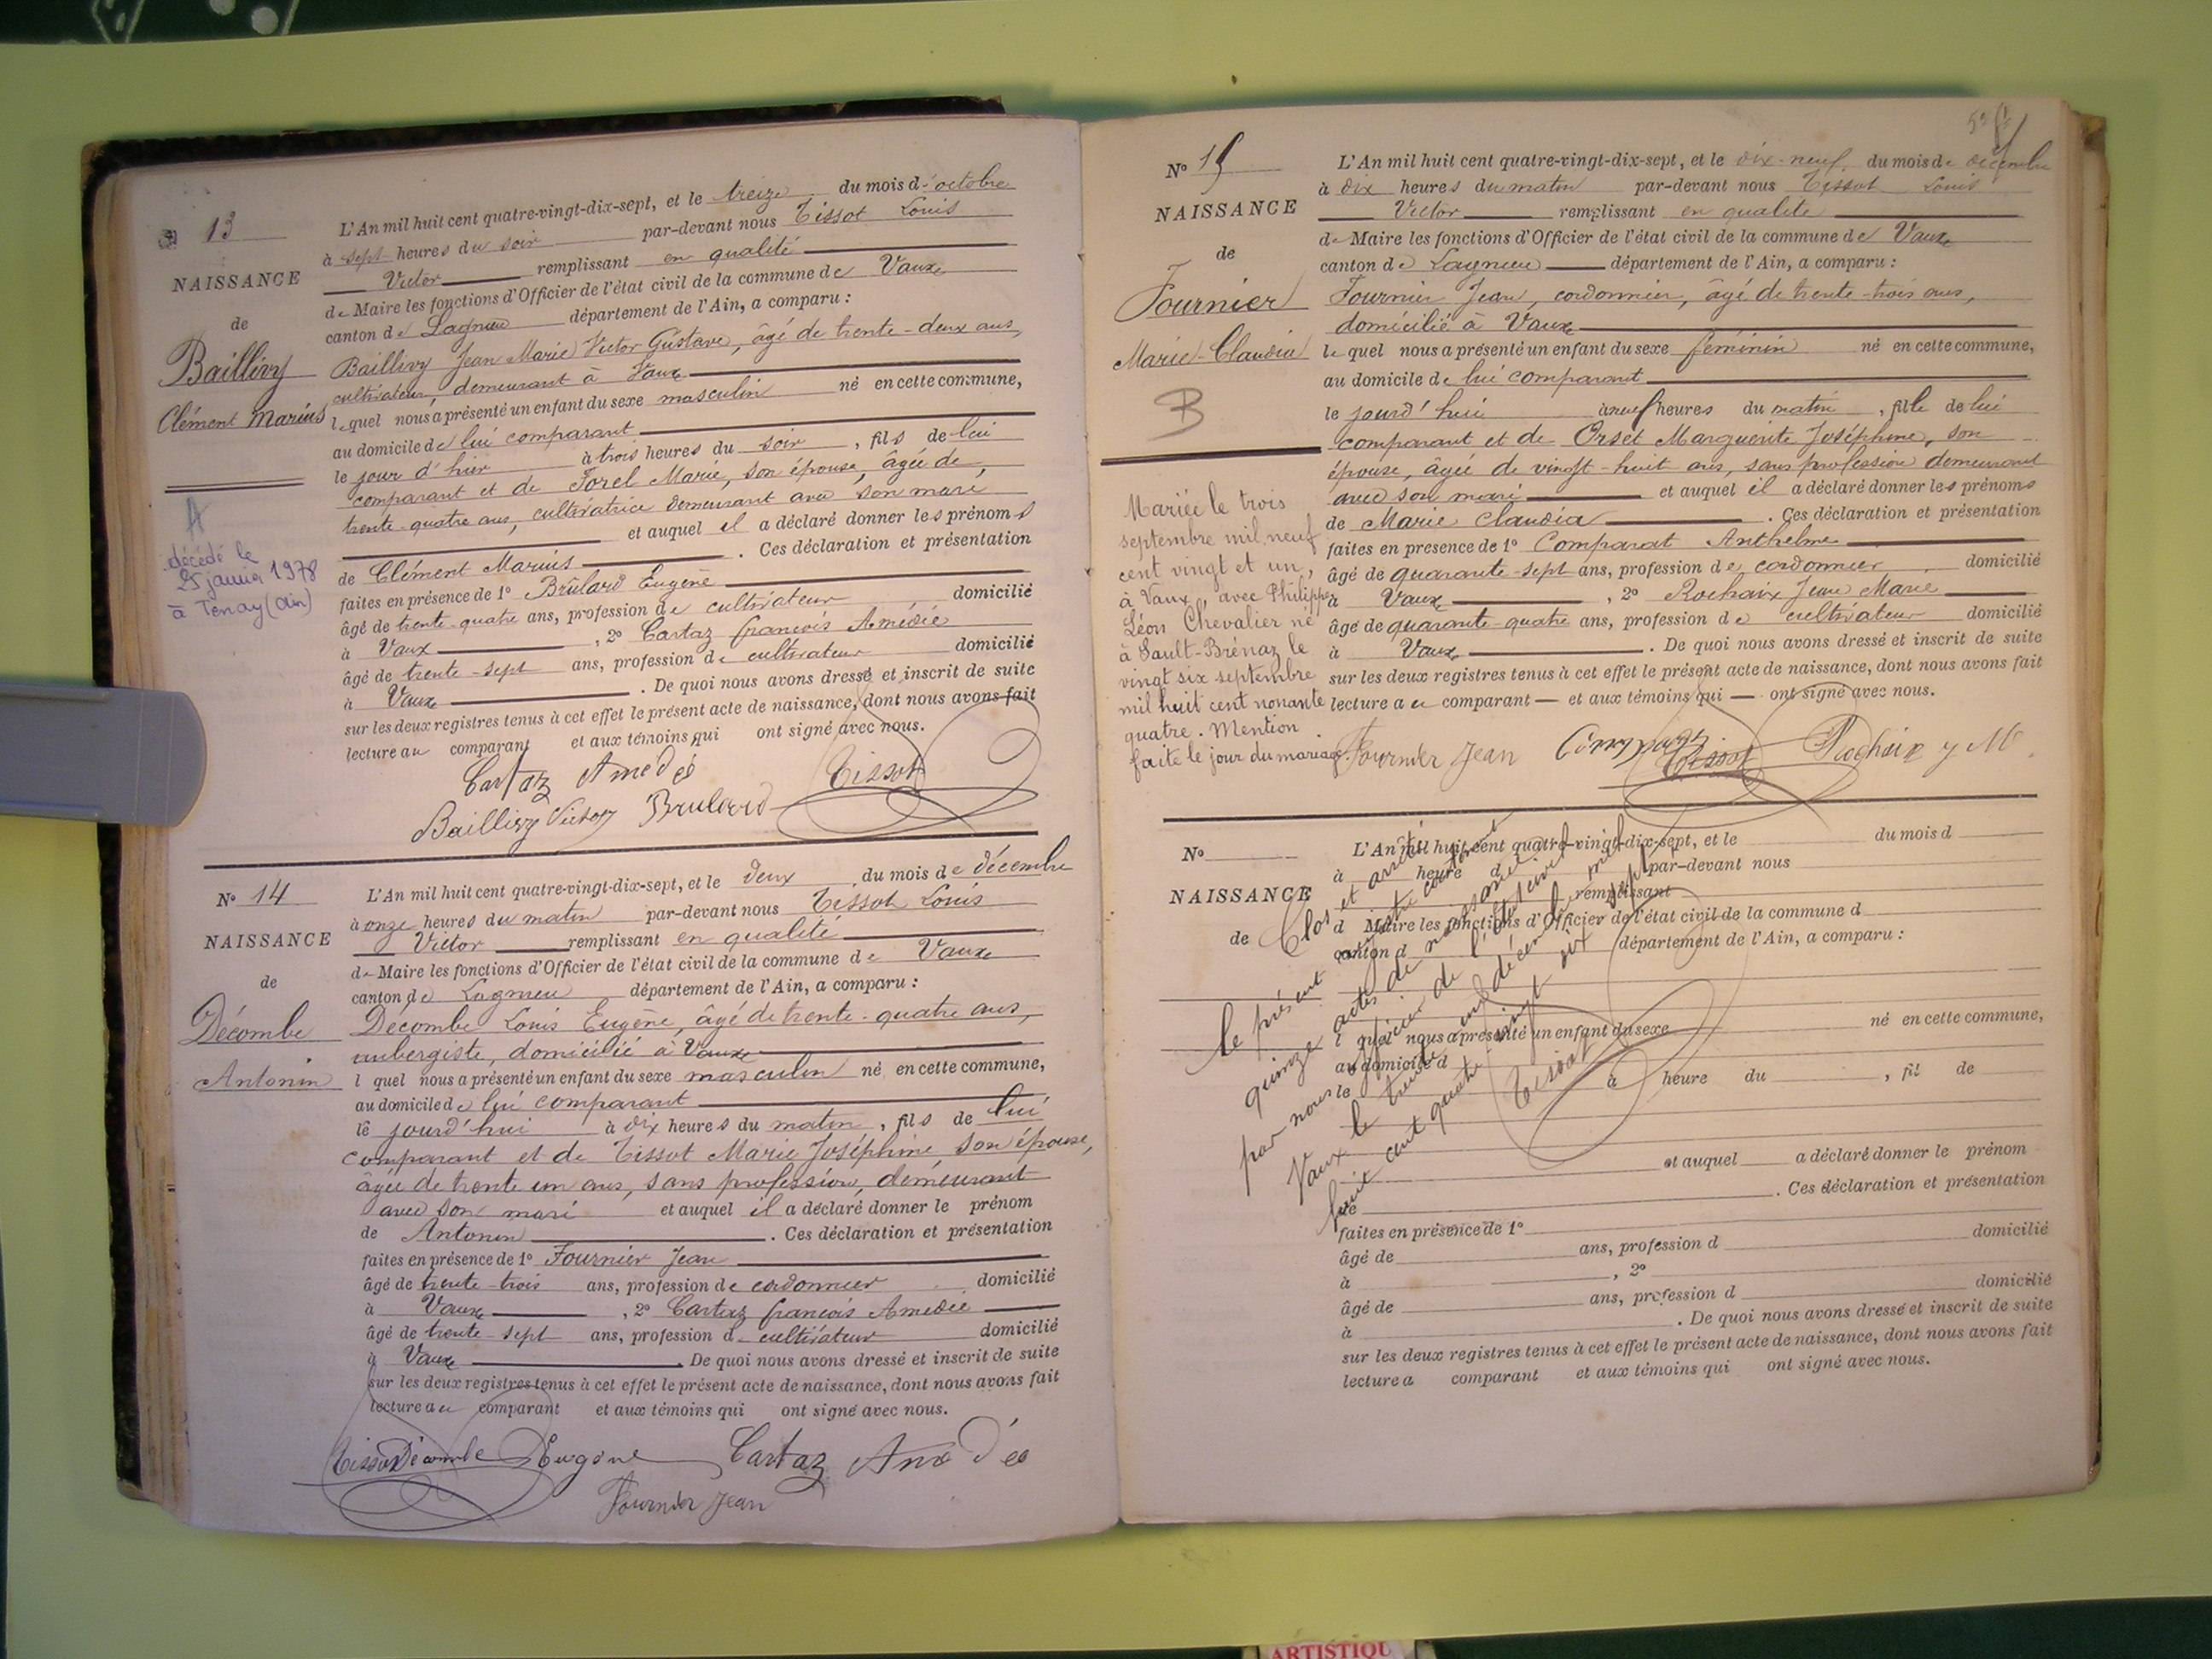 13
NAISSANCE
de
Baillivy
Clément Marius
A
décédé le
25 janvier 1978
à Tenay (Ain)
L'An mil huit cent quatre-vingt-dix-sept, et le treize du mois d'octobre
à sept heures du soir par-devant nous Tissot Louis
Victor remplissant en qualité
de Maire les fonctions d'Officier de l'état civil de la commune de Vaux
canton de Lagnieu département de l'Ain, a comparu :
Baillivy Jean Marie Victor Gustave, âgé de trente-deux ans,
cultivateur, demeurant à Vaux
lequel nous a présenté un enfant du sexe masculin né en cette commune,
au domicile de lui comparant
le jour d'hier à trois heures du soir, fils de lui
comparant et de Forel Marie, son épouse, âgée de
trente-quatre ans, cultivatrice demeurant avec son mari
et auquel il a déclaré donner les prénoms
de Clément Marius. Ces déclaration et présentation
faites en présence de 1° Brûlard Eugène
âgé de trente-quatre ans, profession de cultivateur domicilié
à Vaux, 2° Cartaz françois Amédée
âgé de trente-sept ans, profession de cultivateur domicilié
à Vaux. De quoi nous avons dressé et inscrit de suite
sur les deux registres tenus à cet effet le présent acte de naissance, dont nous avons fait
lecture au comparant et aux témoins qui ont signé avec nous.
Cartaz Amédé Tissot
Baillivy Victor Brulard
N° 14
NAISSANCE
de
Décombe
Antonin
L'An mil huit cent quatre-vingt-dix-sept, et le deux du mois de décembre
à onze heures du matin par-devant nous Tissot Louis
Victor remplissant en qualité
de Maire les fonctions d'Officier de l'état civil de la commune de Vaux
canton de Lagnieu département de l'Ain, a comparu :
Décombe Louis Eugène, âgé de trente-quatre ans,
aubergiste, domicilié à Vaux
l quel nous a présenté un enfant du sexe masculin né en cette commune,
au domicile de lui comparant
le jourd'hui à dix heures du matin, fils de lui
comparant et de Tissot Marie Joséphine son épouse,
âgée de trente un ans, sans profession, demeurant
avec son mari et auquel il a déclaré donner le prénom
de Antonin. Ces déclaration et présentation
faites en présence de 1° Fournier Jean
âgé de trente-trois ans, profession de cordonnier domicilié
à Vaux, 2° Cartaz françois Amédée
âgé de trente-sept ans, profession de cultivateur domicilié
à Vaux. De quoi nous avons dressé et inscrit de suite
sur les deux registres tenus à cet effet le présent acte de naissance, dont nous avons fait
lecture au comparant et aux témoins qui ont signé avec nous.
Tissot Décombe Eugène Cartaz Amédée
Fournier Jean
N° 15
NAISSANCE
de
Fournier
Marie-Claudia
B
Mariée le trois
septembre mil neuf
cent vingt et un,
à Vaux, avec Philippe
Léon Chevalier né
à Sault-Brénaz le
vingt six septembre
mil huit cent nonante
quatre. Mention
faite le jour du mariage.
L'An mil huit cent quatre-vingt-dix-sept, et le dix-neuf du mois de décembre
à dix heures du matin par-devant nous Tissot Louis
Victor remplissant en qualité
de Maire les fonctions d'Officier de l'état civil de la commune de Vaux
canton de Lagnieu département de l'Ain, a comparu :
Fournier Jean, cordonnier, âgé de trente-trois ans,
domicilié à Vaux
lequel nous a présenté un enfant du sexe féminin né en cette commune,
au domicile de lui comparant
le jourd'hui à neuf heures du matin, fille de lui
comparant et de Orset Marguerite Joséphine, son
épouse, âgée de vingt-huit ans, sans profession demeurant
avec son mari et auquel il a déclaré donner les prénoms
de Marie Claudia. Ces déclaration et présentation
faites en presence de 1° Comparat Anthelme
âgé de quarante-sept ans, profession de cordonnier domicilié
à Vaux, 2° Rochaix Jean Marie
âgé de quarante-quatre ans, profession de cultivateur domicilié
à Vaux. De quoi nous avons dressé et inscrit de suite
sur les deux registres tenus à cet effet le présent acte de naissance, dont nous avons fait
lecture a u comparant — et aux témoins qui — ont signé avec nous.
Fournier Jean Comparat Tissot Rochaix J M
N°
NAISSANCE
de
L'An mil huit cent quatre-vingt-dix-sept, et le du mois d
à heure d par-devant nous
remplissant
d Maire les fonctions d'Officier de l'état civil de la commune d
canton d département de l'Ain, a comparu :
l quel nous a présenté un enfant du sexe né en cette commune,
au domicile d
le à heure du , fil de
et auquel a déclaré donner le prénom
de . Ces déclaration et présentation
faites en présence de 1°
âgé de ans, profession d domicilié
à , 2°
âgé de ans, profession d domicilié
à . De quoi nous avons dressé et inscrit de suite
sur les deux registres tenus à cet effet le présent acte de naissance, dont nous avons fait
lecture a comparant et aux témoins qui ont signé avec nous.
Clos et arrêté
le présent registre contenant
quinze actes de naissance
par nous officier de l'état civil
Vaux le trente un décembre mil
huit cent quatre vingt dix sept
Tissot
ARTISTIQU